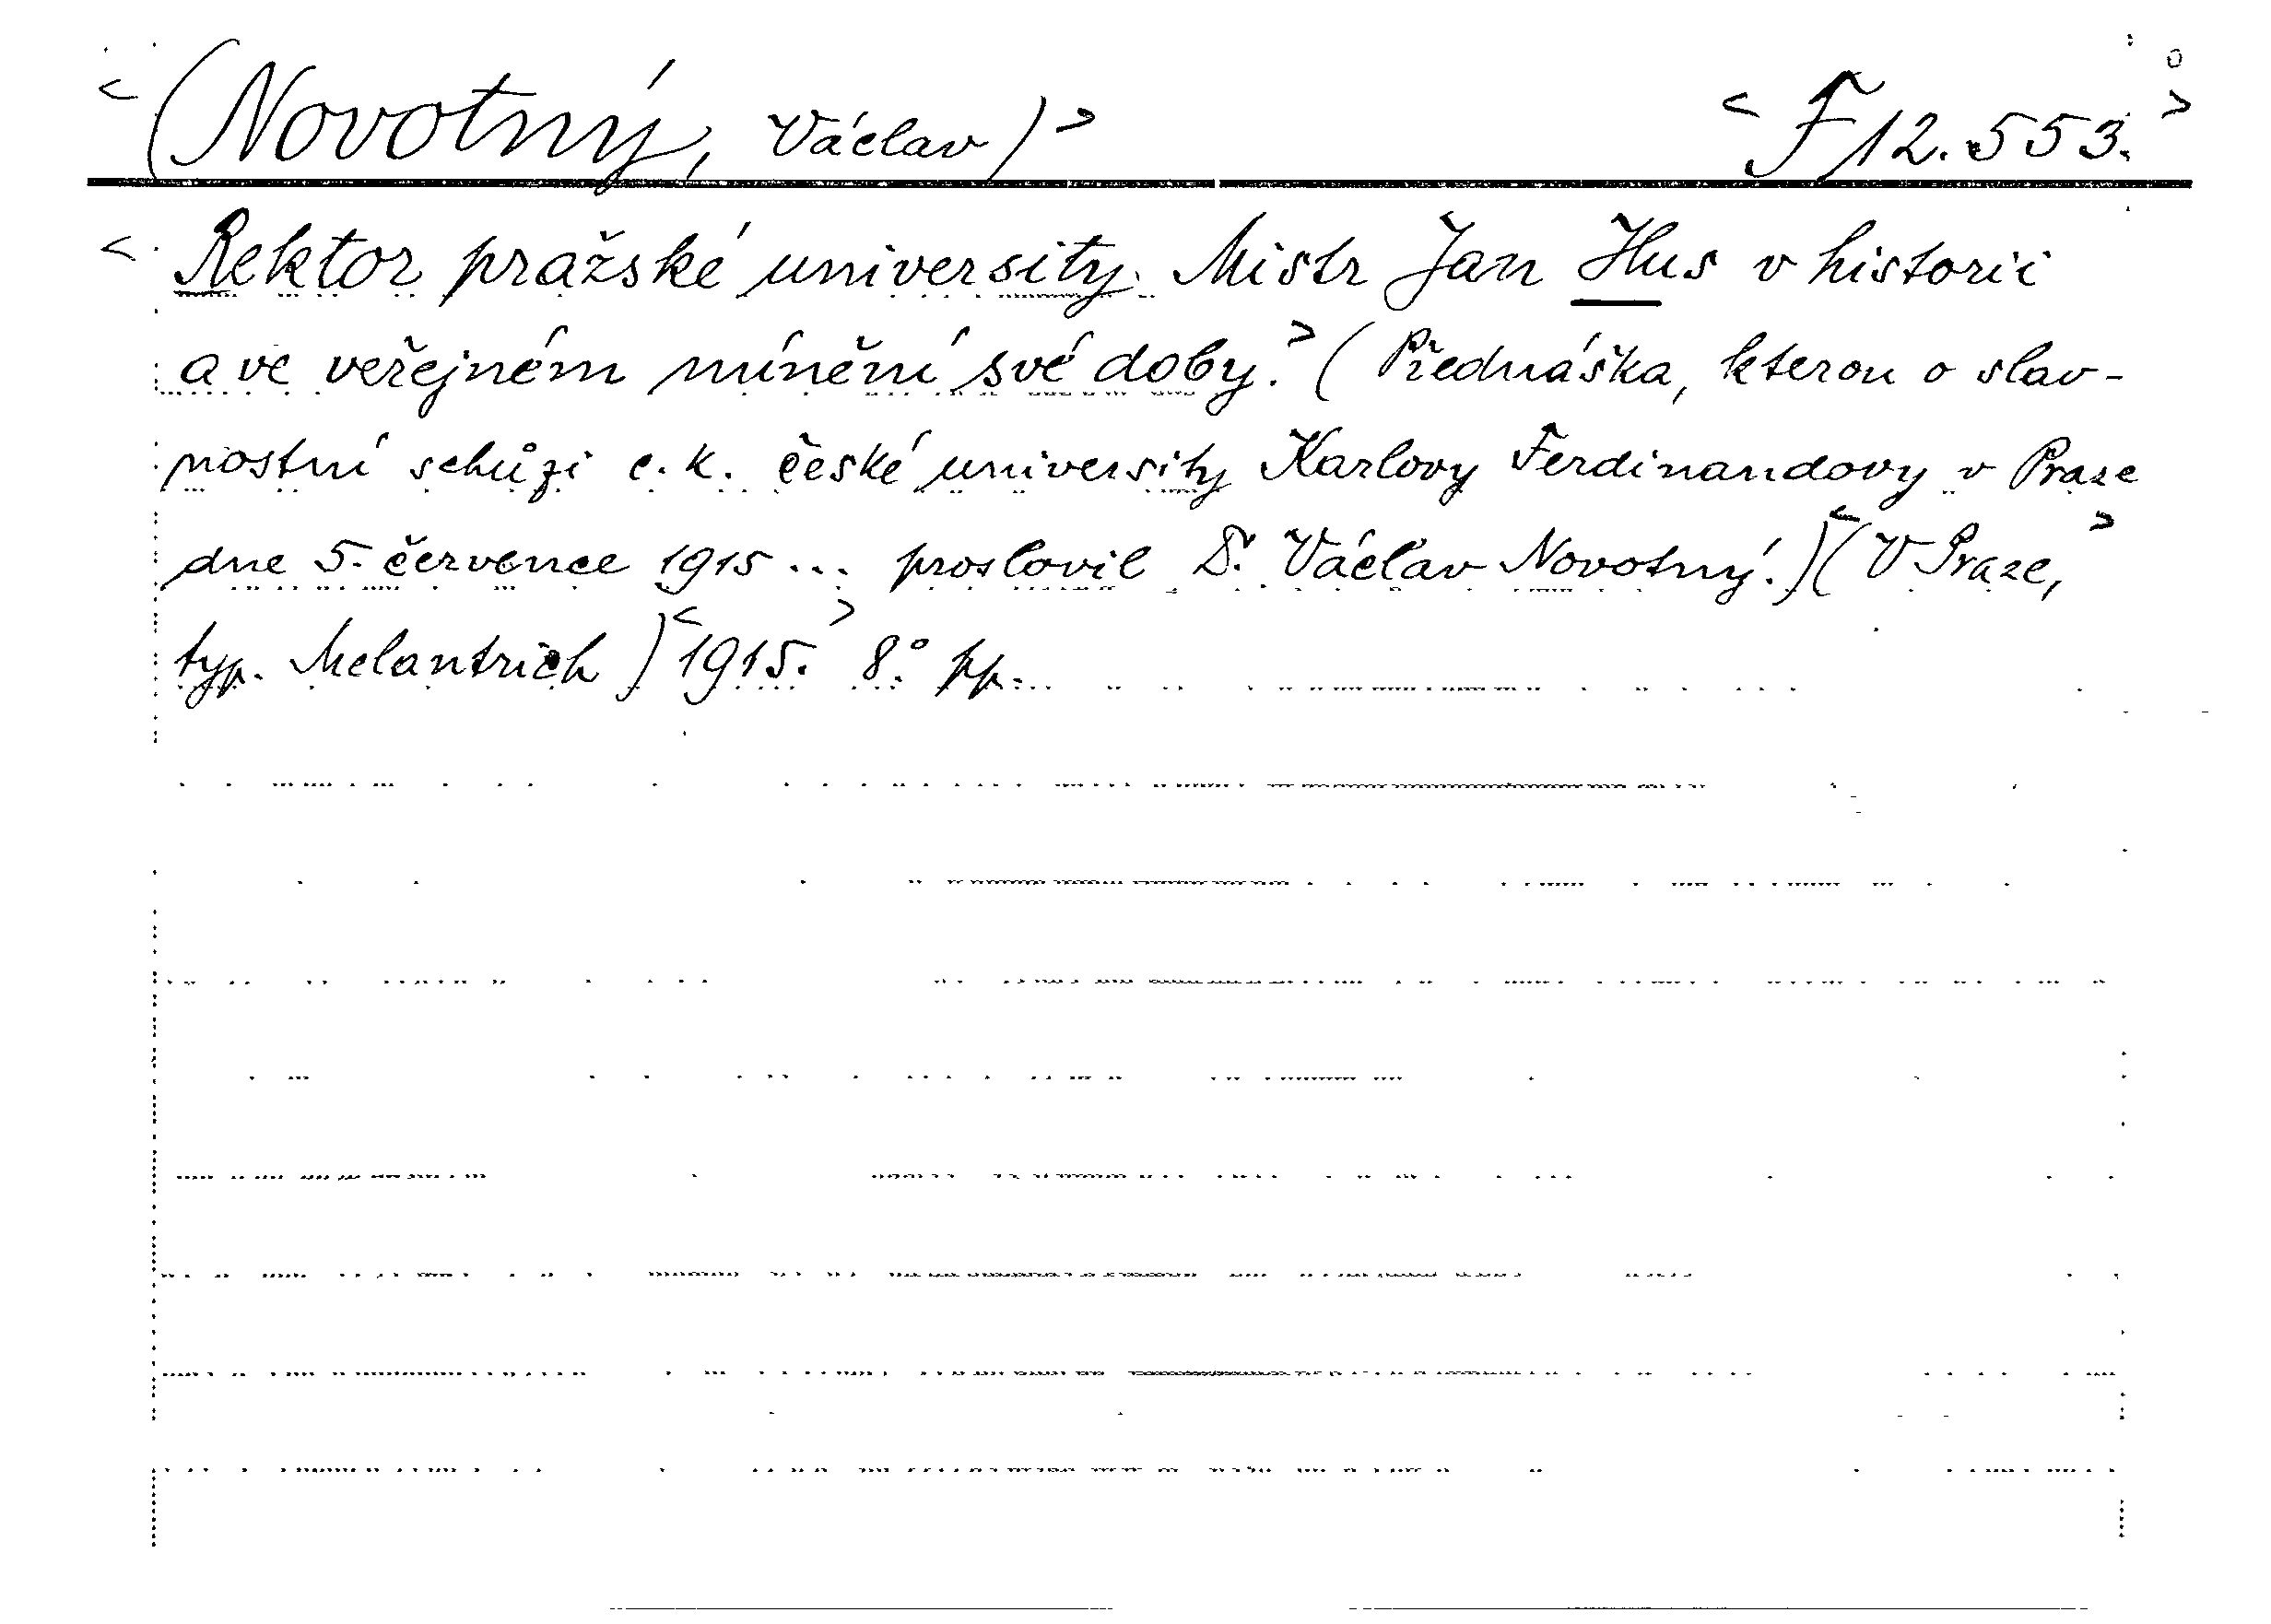 <(Novotný, Václav)> <F 12.553.>
<Rektor pražské university. Mistr Jan Hus v historii
a ve veřejném mínění své doby.> (Přednáška, kterou o slav-
nostní schůzi c. k. české university Karlovy Ferdinandovy v Praze
dne 5. července 1915 ... proslovil Dr. Václav Novotný.) <(V Praze,>
typ. Melantrich) <1915.> 8° pp.